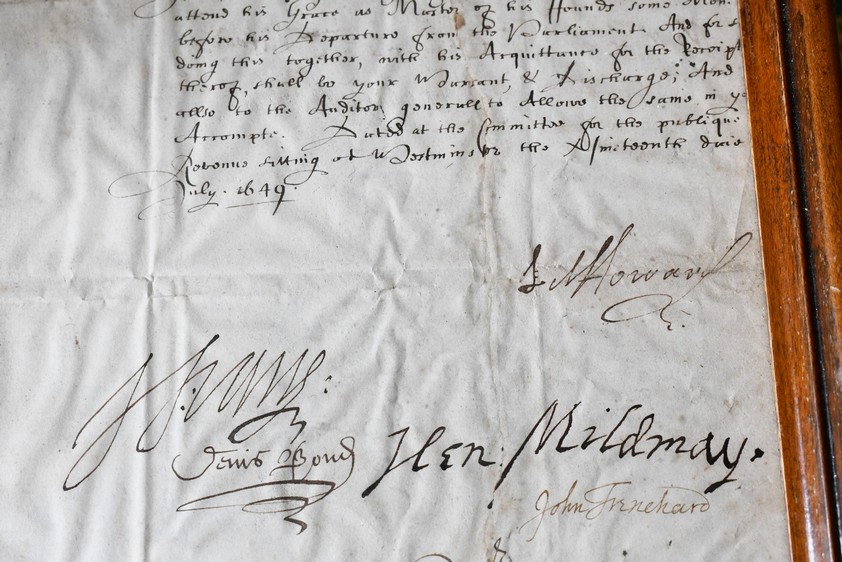 attend his Grace as Master of his Hounds some
before his Departure from the Parliament. And for
doing this together, with his Acquittance for the Receipt
thereof, shall be your Warrant, & discharge; And
allso to the Auditor generall to Allowe the same in yo
Accompte. Dated at the Committee for the publique
Revenue sitting at Westminster the Nineteenth
July. 1649.
Howard
Denis Bond Hen: Mildmay.
John Trenchard